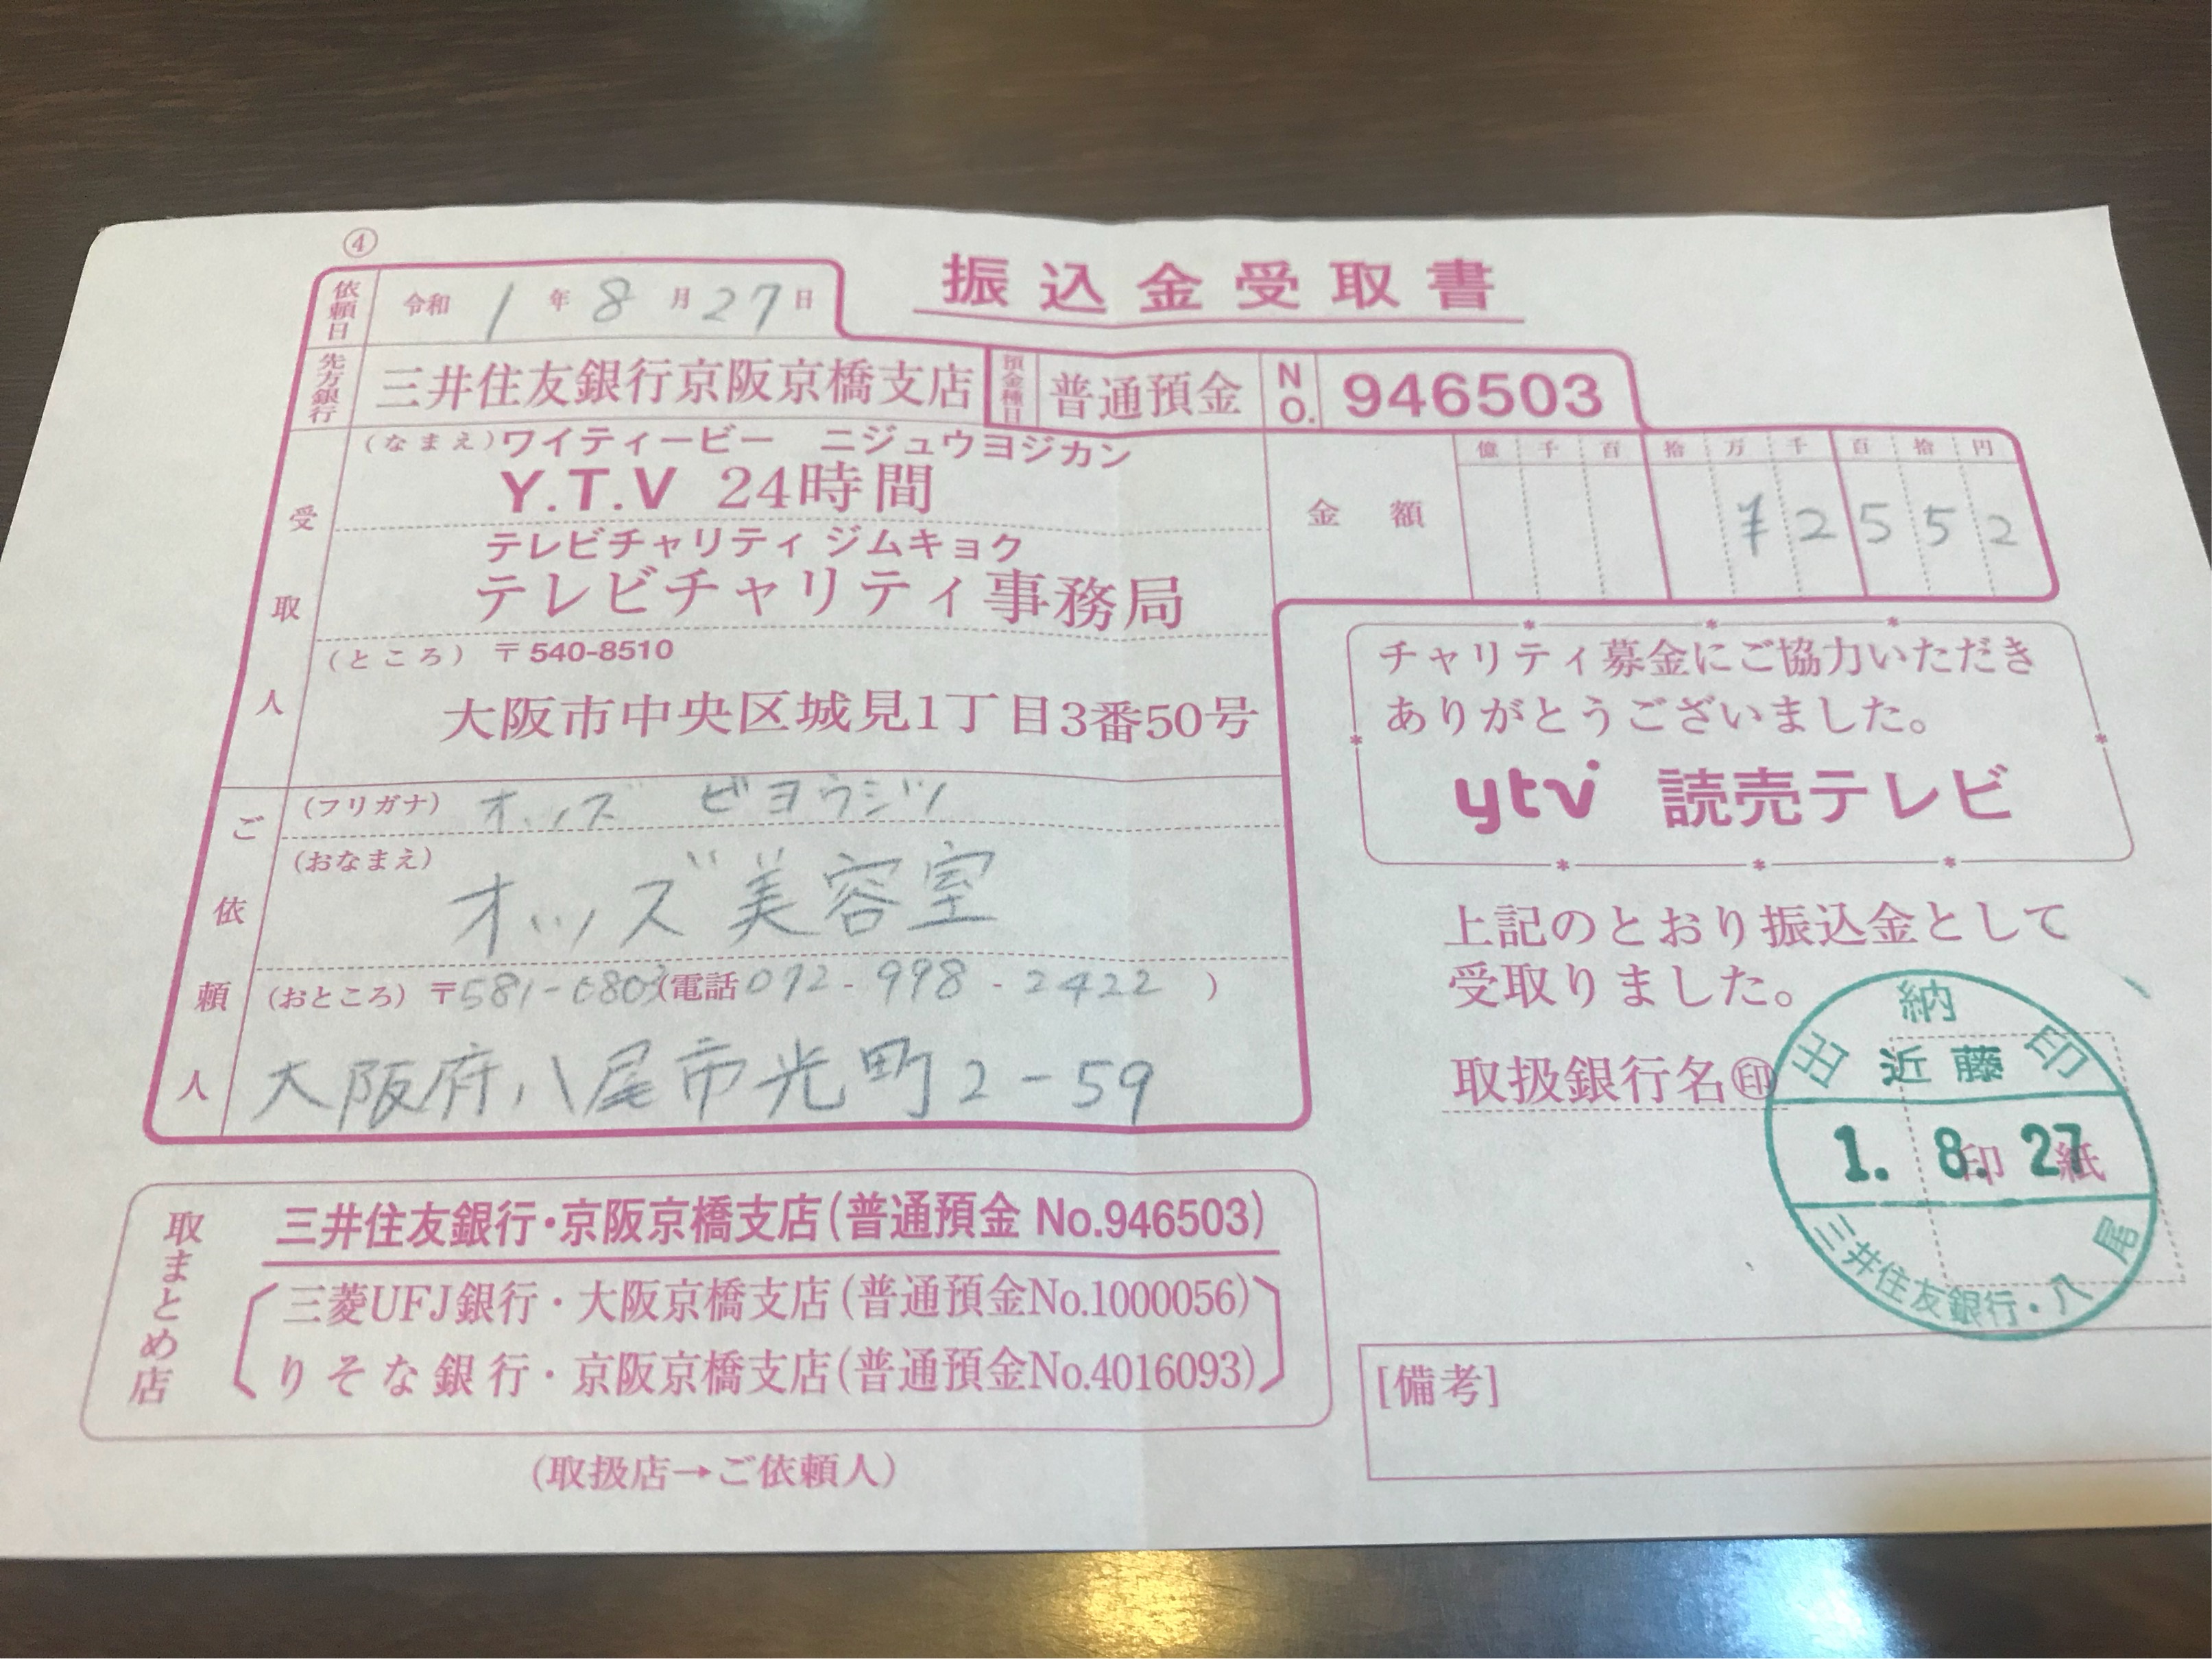 ④
振込金受取書
依頼日 令和 1 年 8 月 27 日
先方銀行 三井住友銀行京阪京橋支店 預金種目 普通預金 NO. 946503
受取人
(なまえ) ワイティービー ニジュウヨジカン
Y.T.V 24時間
テレビチャリティ ジムキョク
テレビチャリティ事務局
(ところ) 〒540-8510
大阪市中央区城見1丁目3番50号
金額 億 千 百 拾 万 千 百 拾 円
¥2552
ご依頼人
(フリガナ) オッズ ビヨウシツ
(おなまえ)
オッズ美容室
(おところ) 〒581-0803 (電話 072-998-2422 )
大阪府八尾市光町2-59
チャリティ募金にご協力いただき
ありがとうございました。
ytv 読売テレビ
上記のとおり振込金として
受取りました。
取扱銀行名㊞
印紙
出納印
近藤
1. 8. 27
三井住友銀行・八尾
取まとめ店
三井住友銀行・京阪京橋支店(普通預金 No.946503)
三菱UFJ銀行・大阪京橋支店(普通預金No.1000056)
りそな銀行・京阪京橋支店(普通預金No.4016093)
(取扱店→ご依頼人)
[備考]